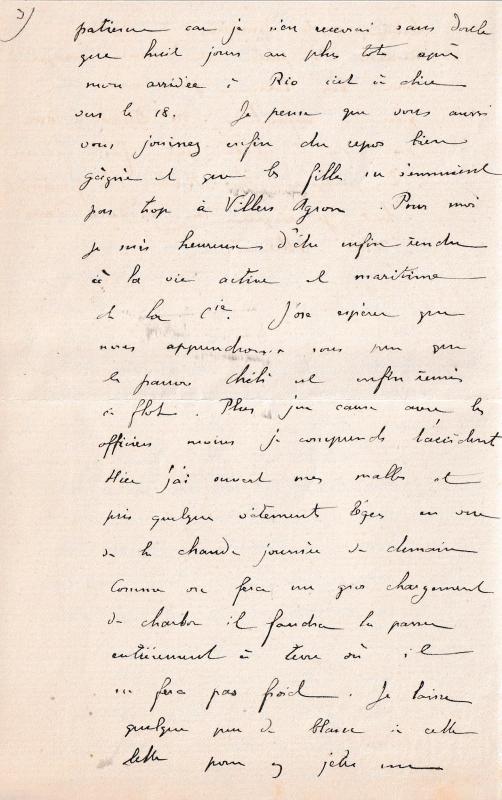 3)
patience car je n'en recevrai sans doute
que huit jours au plus tôt après
mon arrivée à Rio c'est à dire
vers le 18. Je pense que vous aussi
vous jouissez enfin du repos bien
gagné et que les filles ne s'ennuient
pas trop à Villers Agron. Pour moi
je suis heureux d'être enfin rendu
à la vie active et maritime
de la Cie. J'ose espérer que
nous apprendrons sous peu que
le pauvre Chili est enfin remis
à flot. Plus j'en cause avec les
officiers moins je comprends l'accident
Hier j'ai ouvert mes malles et
pris quelques vêtements légers en vue
de la chaude journée de demain
Comme on fera un gros chargement
de charbon il faudra la passer
entièrement à terre où il
ne fera pas froid. Je laisse
quelque peu de blanc à cette
lettre pour y jeter un